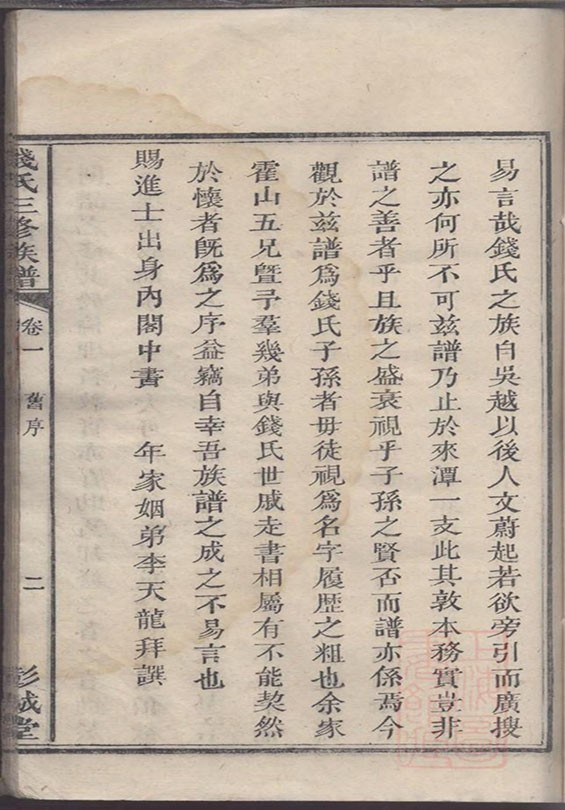 易言哉錢氏之族自吳越以後人文蔚起若欲旁引而廣搜
之亦何所不可兹譜乃止於來潭一支此其敦本務實豈非
譜之善者乎且族之盛衰視乎子孫之賢否而譜亦係焉今
觀於兹譜爲錢氏子孫者毋徒視爲名字履歷之粗也余家
霍山五兄曁予羣幾弟與錢氏世戚走書相屬有不能契然
於懷者旣爲之序益竊自幸吾族譜之成之不易言也
賜進士出身內閣中書 年家姻弟李天龍拜譔
錢氏三修族譜 卷一 舊序 二 彭城堂